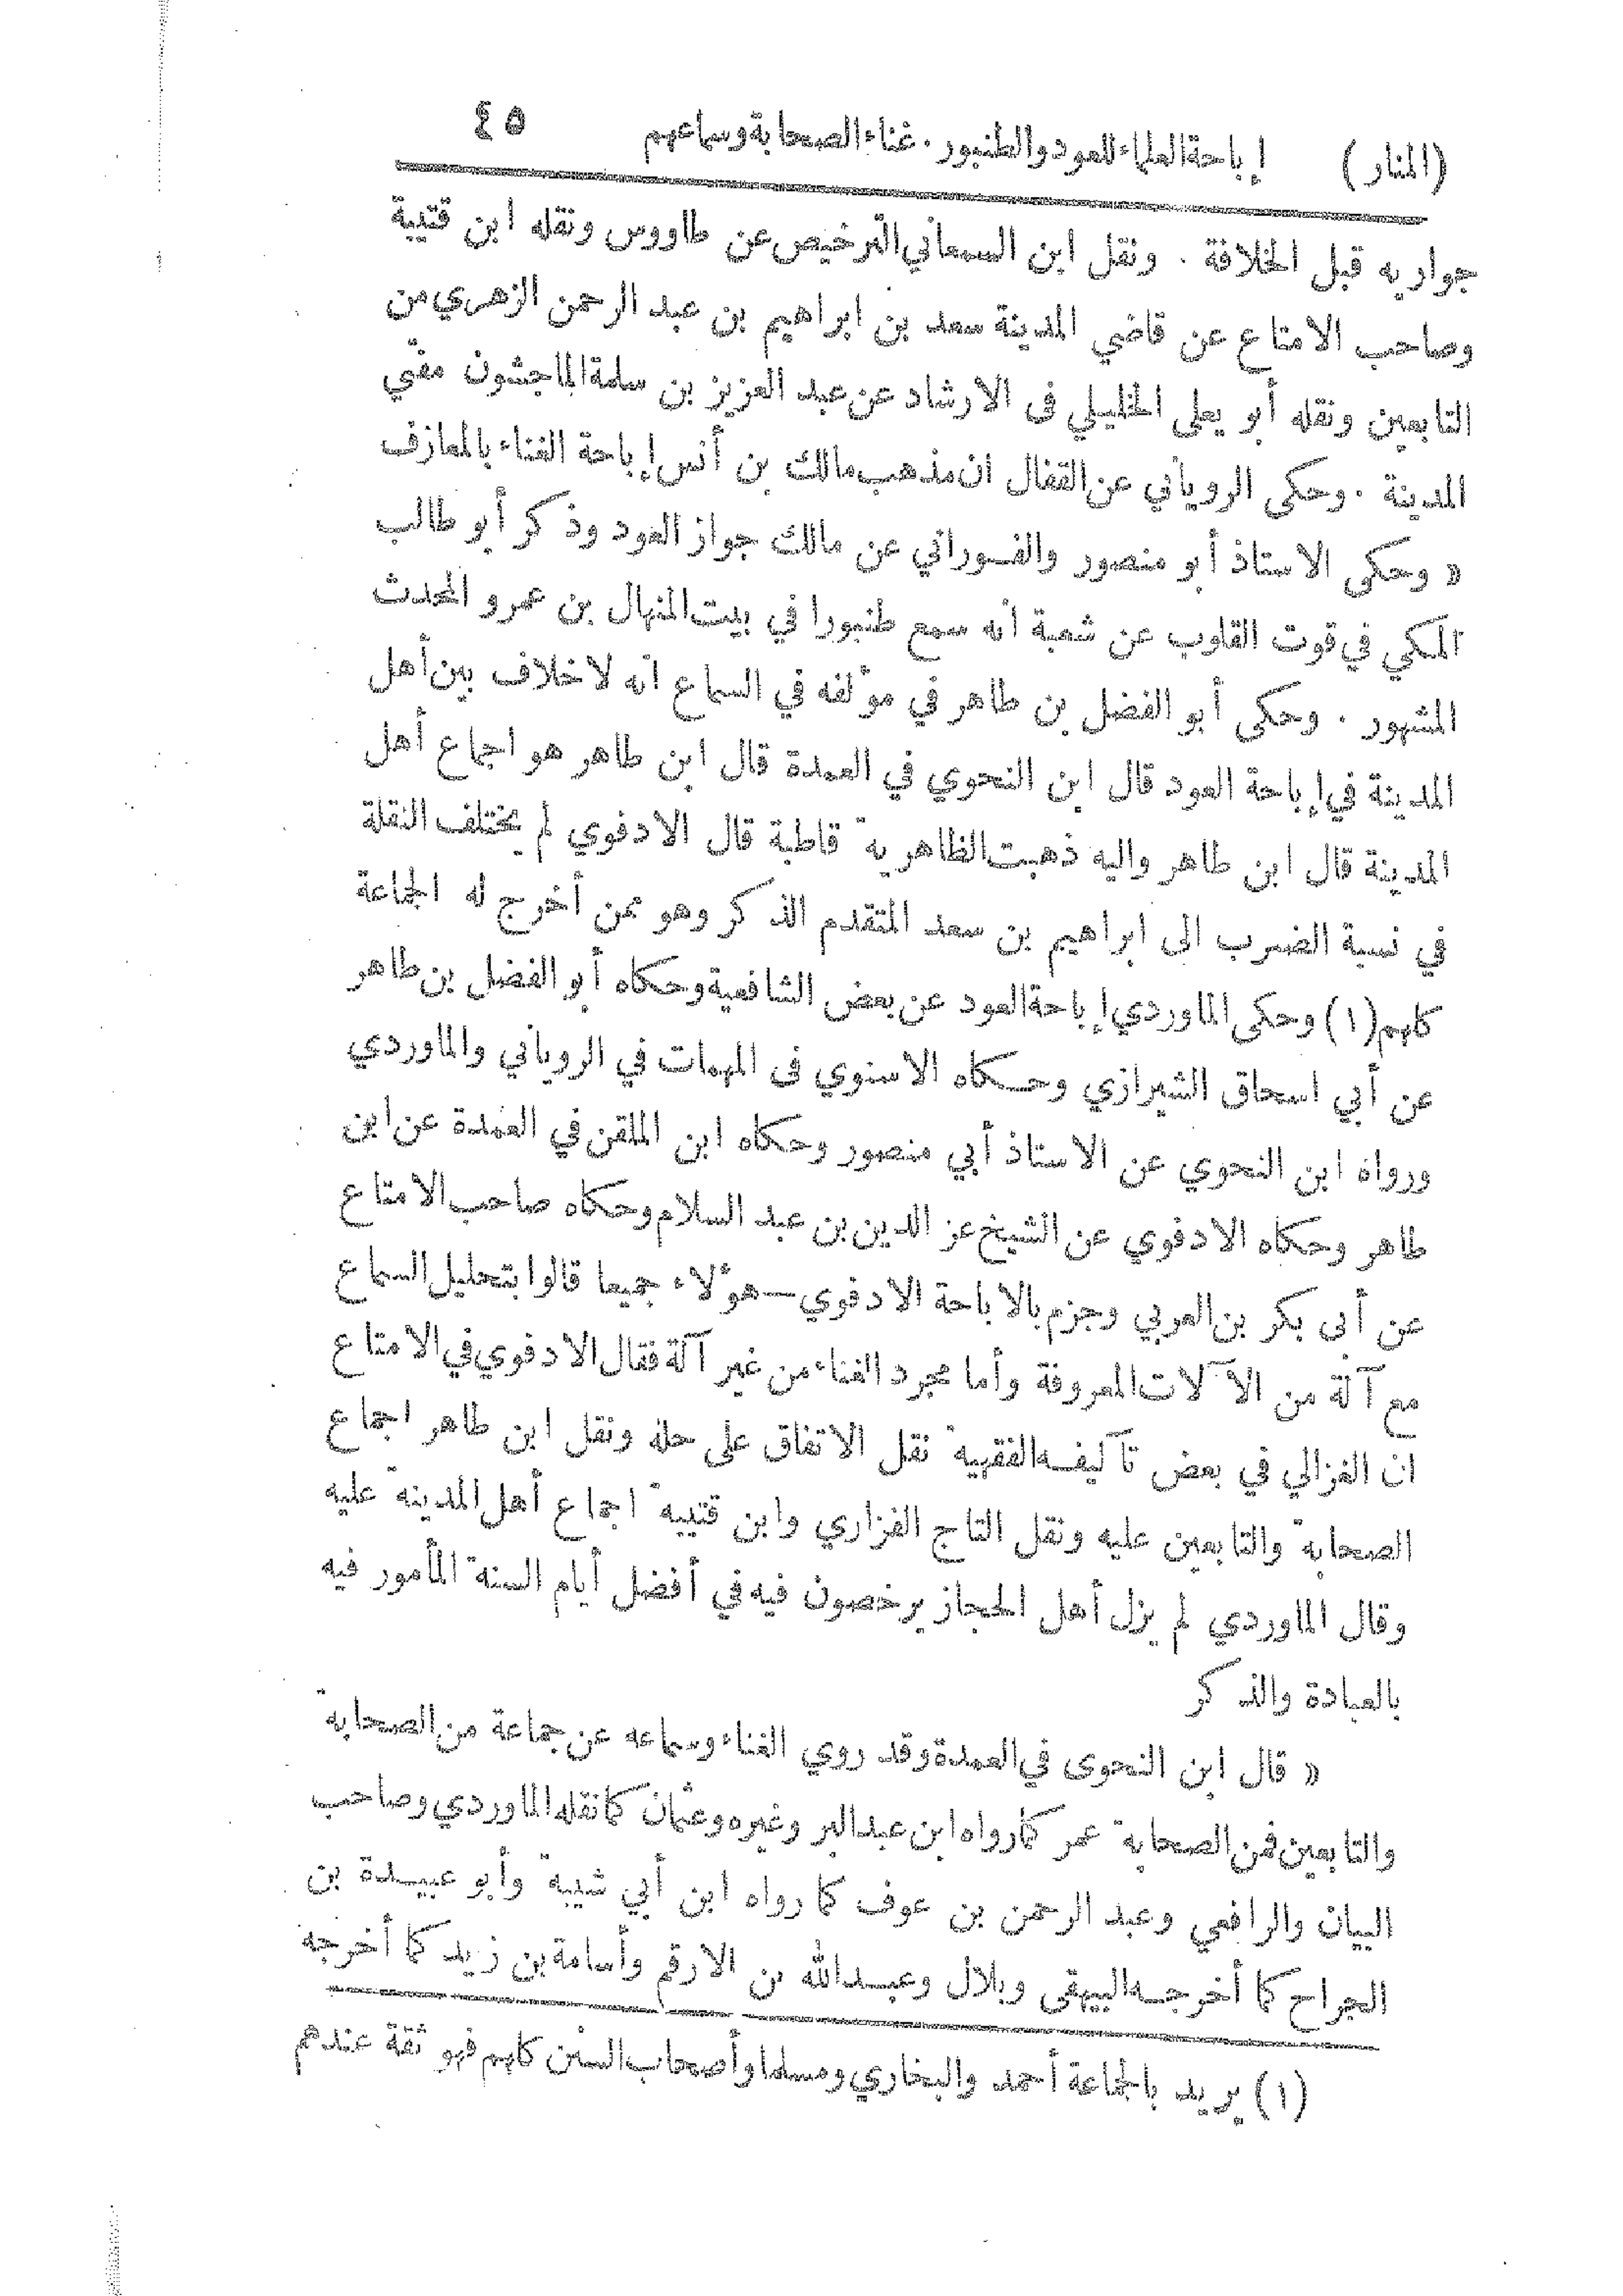 (المنار) إباحة العلماء للعود والطنبور. غناء الصحابة وسماعهم ٤٥
جواريه قبل الخلافة . ونقل ابن السمعاني الترخيص عن طاووس ونقله ابن قتيبة
وصاحب الامتاع عن قاضي المدينة سعد بن ابراهيم بن عبد الرحمن الزهري من
التابعين ونقله أبو يعلى الخليلي فى الارشاد عن عبد العزيز بن سلمة الماجشون مفتي
المدينة . وحكى الروياني عن القفال ان مذهب مالك بن أنس إباحة الغناء بالمعازف
« وحكى الاستاذ أبو منصور والفوراني عن مالك جواز العود وذكر أبو طالب
المكي في قوت القلوب عن شعبة أنه سمع طنبورا في بيت المنهال بن عمرو المحدث
المشهور . وحكى أبو الفضل بن طاهر في مؤلفه في السماع أنه لا خلاف بين أهل
المدينة في إباحة العود قال ابن النحوي في العمدة قال ابن طاهر هو اجماع أهل
المدينة قال ابن طاهر واليه ذهبت الظاهرية قاطبة قال الادفوي لم يختلف النقلة
في نسبة الضرب الى ابراهيم بن سعد المتقدم الذكر وهو ممن أخرج له الجماعة
كلهم (١) وحكى الماوردي إباحة العود عن بعض الشافعية وحكاه أبو الفضل بن طاهر
عن أبي اسحاق الشيرازي وحكاه الاسنوي فى المهمات في الروياني والماوردي
ورواه ابن النحوي عن الاستاذ أبي منصور وحكاه ابن الملقن في العمدة عن ابن
طاهر وحكاه الادفوي عن الشيخ عز الدين بن عبد السلام وحكاه صاحب الامتاع
عن أبى بكر بن العربي وجزم بالاباحة الادفوي — هؤلاء جميعا قالوا بتحليل السماع
مع آلة من الآلات المعروفة وأما مجرد الغناء من غير آلة فقال الادفوي في الامتاع
ان الغزالي في بعض تآليفه الفقهية نقل الاتفاق على حله ونقل ابن طاهر اجماع
الصحابة والتابعين عليه ونقل التاج الفزاري وابن قتيبة اجماع أهل المدينة عليه
وقال الماوردي لم يزل أهل الحجاز يرخصون فيه في أفضل أيام السنة المأمور فيه
بالعبادة والذكر
« قال ابن النحوى في العمدة وقد روي الغناء وسماعه عن جماعة من الصحابة
والتابعين فمن الصحابة عمر كما رواه ابن عبد البر وغيره وعثمان كما نقله الماوردي وصاحب
البيان والرافعي وعبد الرحمن بن عوف كما رواه ابن أبي شيبة وأبو عبيدة بن
الجراح كما أخرجه البيهقى وبلال وعبد الله بن الارقم وأسامة بن زيد كما أخرجه
(١) يريد بالجماعة أحمد والبخاري ومسلما وأصحاب السنن كلهم فهو ثقة عندهم